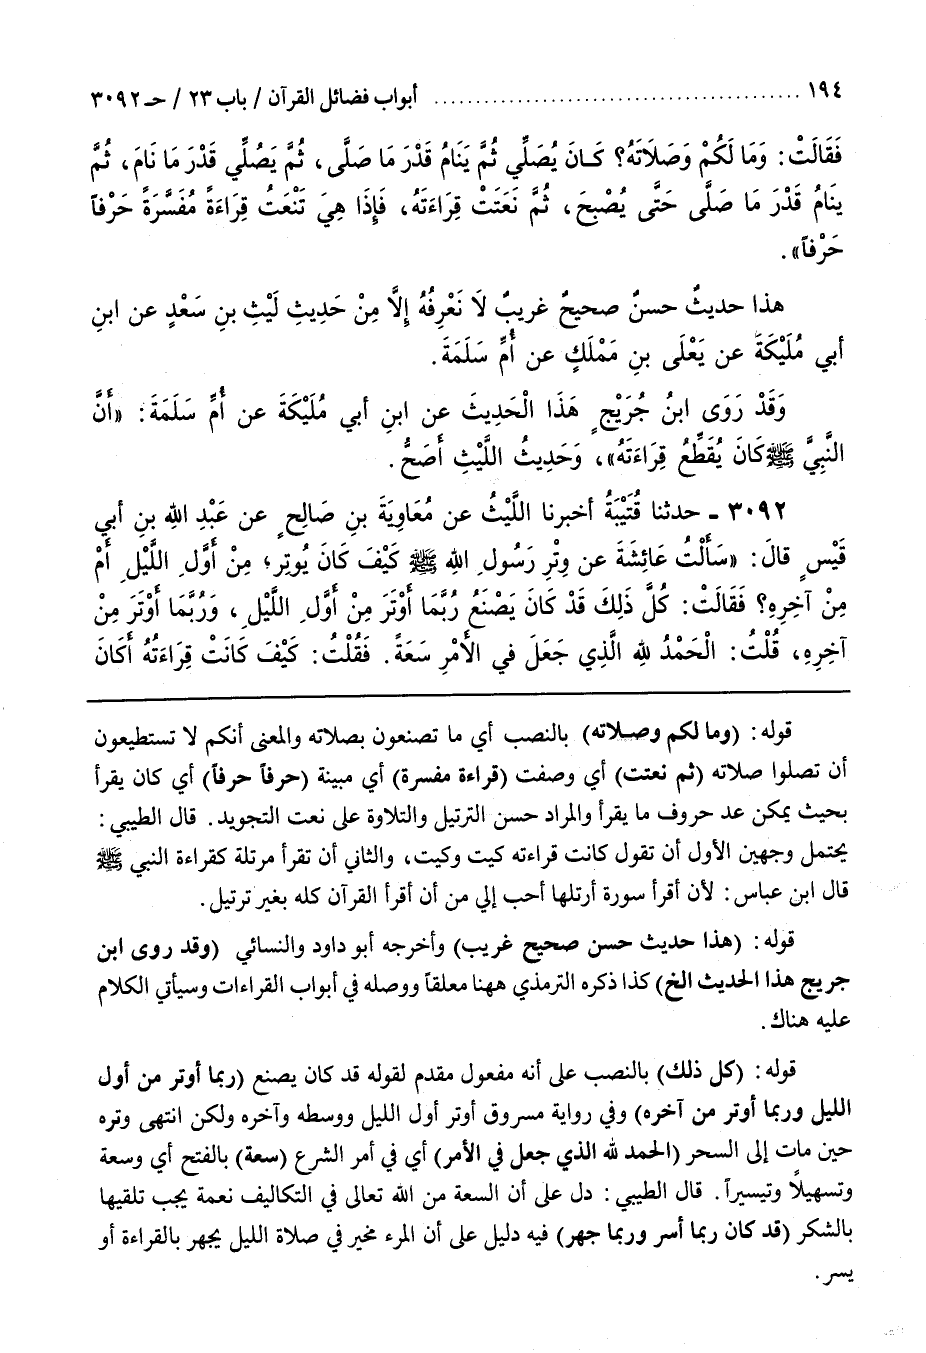 ١٩٤ ........................................ أبواب فضائل القرآن / باب ٢٣ / حـ ٣٠٩٢
فَقَالَتْ: وَمَا لَكُمْ وَصَلَاتَهُ؟ كَانَ يُصَلِّي ثُمَّ يَنَامُ قَدْرَ مَا صَلَّى، ثُمَّ يَصُلِّي قَدْرَ مَا نَامَ، ثُمَّ
يَنَامُ قَدْرَ مَا صَلَّى حَتَّى يُصْبِحَ، ثُمَّ نَعَتَتْ قِرَاءَتَهُ، فَإِذَا هِيَ تَنْعَتُ قِرَاءَةً مُفَسَّرَةً حَرْفاً
حَرْفاً».
هذا حديثٌ حسنٌ صحيحٌ غريبٌ لَا نَعْرِفُهُ إِلَّا مِنْ حَدِيثِ لَيْثِ بنِ سَعْدٍ عن ابنِ
أبي مُلَيْكَةَ عن يَعْلَى بنِ مَمْلَكٍ عن أُمِّ سَلَمَةَ.
وَقَدْ رَوَى ابنُ جُرَيْجٍ هَذَا الْحَدِيثَ عن ابنِ أبي مُلَيْكَةَ عن أُمِّ سَلَمَةَ: «أَنَّ
النَّبِيَّ ﷺ كَانَ يُقَطِّعُ قِرَاءَتَهُ»، وَحَدِيثُ اللَّيْثِ أَصَحُّ.
٣٠٩٢ ـ حدثنا قُتَيْبَةُ أخبرنا اللَّيْثُ عن مُعَاوِيَةَ بنِ صَالِحٍ عن عَبْدِ اللهِ بنِ أبي
قَيْسٍ قالَ: «سَأَلْتُ عَائِشَةَ عن وِتْرِ رَسُولِ اللهِ ﷺ كَيْفَ كَانَ يُوتِرِ؛ مِنْ أَوَّلِ اللَّيْلِ أَمْ
مِنْ آخِرِهِ؟ فَقَالَتْ: كُلَّ ذلِكَ قَدْ كَانَ يَصْنَعُ رُبَّمَا أَوْتَرَ مِنْ أَوَّلِ اللَّيْلِ، وَرُبَّمَا أَوْتَرَ مِنْ
آخِرِهِ، قُلْتُ: الْحَمْدُ للهِ الَّذِي جَعَلَ في الأَمْرِ سَعَةً. فَقُلْتُ: كَيْفَ كَانَتْ قِرَاءَتُهُ أَكَانَ
قوله: (وما لكم وصلاته) بالنصب أي ما تصنعون بصلاته والمعنى أنكم لا تستطيعون
أن تصلوا صلاته (ثم نعتت) أي وصفت (قراءة مفسرة) أي مبينة (حرفاً حرفاً) أي كان يقرأ
بحيث يمكن عد حروف ما يقرأ والمراد حسن الترتيل والتلاوة على نعت التجويد. قال الطيبي:
يحتمل وجهين الأول أن تقول كانت قراءته كيت وكيت، والثاني أن تقرأ مرتلة كقراءة النبي ﷺ
قال ابن عباس: لأن أقرأ سورة أرتلها أحب إلي من أن أقرأ القرآن كله بغير ترتيل.
قوله: (هذا حديث حسن صحيح غريب) وأخرجه أبو داود والنسائي (وقد روى ابن
جريج هذا الحديث الخ) كذا ذكره الترمذي ههنا معلقاً ووصله في أبواب القراءات وسيأتي الكلام
عليه هناك.
قوله: (كل ذلك) بالنصب على أنه مفعول مقدم لقوله قد كان يصنع (ربما أوتر من أول
الليل وربما أوتر من آخره) وفي رواية مسروق أوتر أول الليل ووسطه وآخره ولكن انتهى وتره
حين مات إلى السحر (الحمد لله الذي جعل في الأمر) أي في أمر الشرع (سعة) بالفتح أي وسعة
وتسهيلاً وتيسيراً. قال الطيبي: دل على أن السعة من الله تعالى في التكاليف نعمة يجب تلقيها
بالشكر (قد كان ربما أسر وربما جهر) فيه دليل على أن المرء مخير في صلاة الليل يجهر بالقراءة أو
يسر.